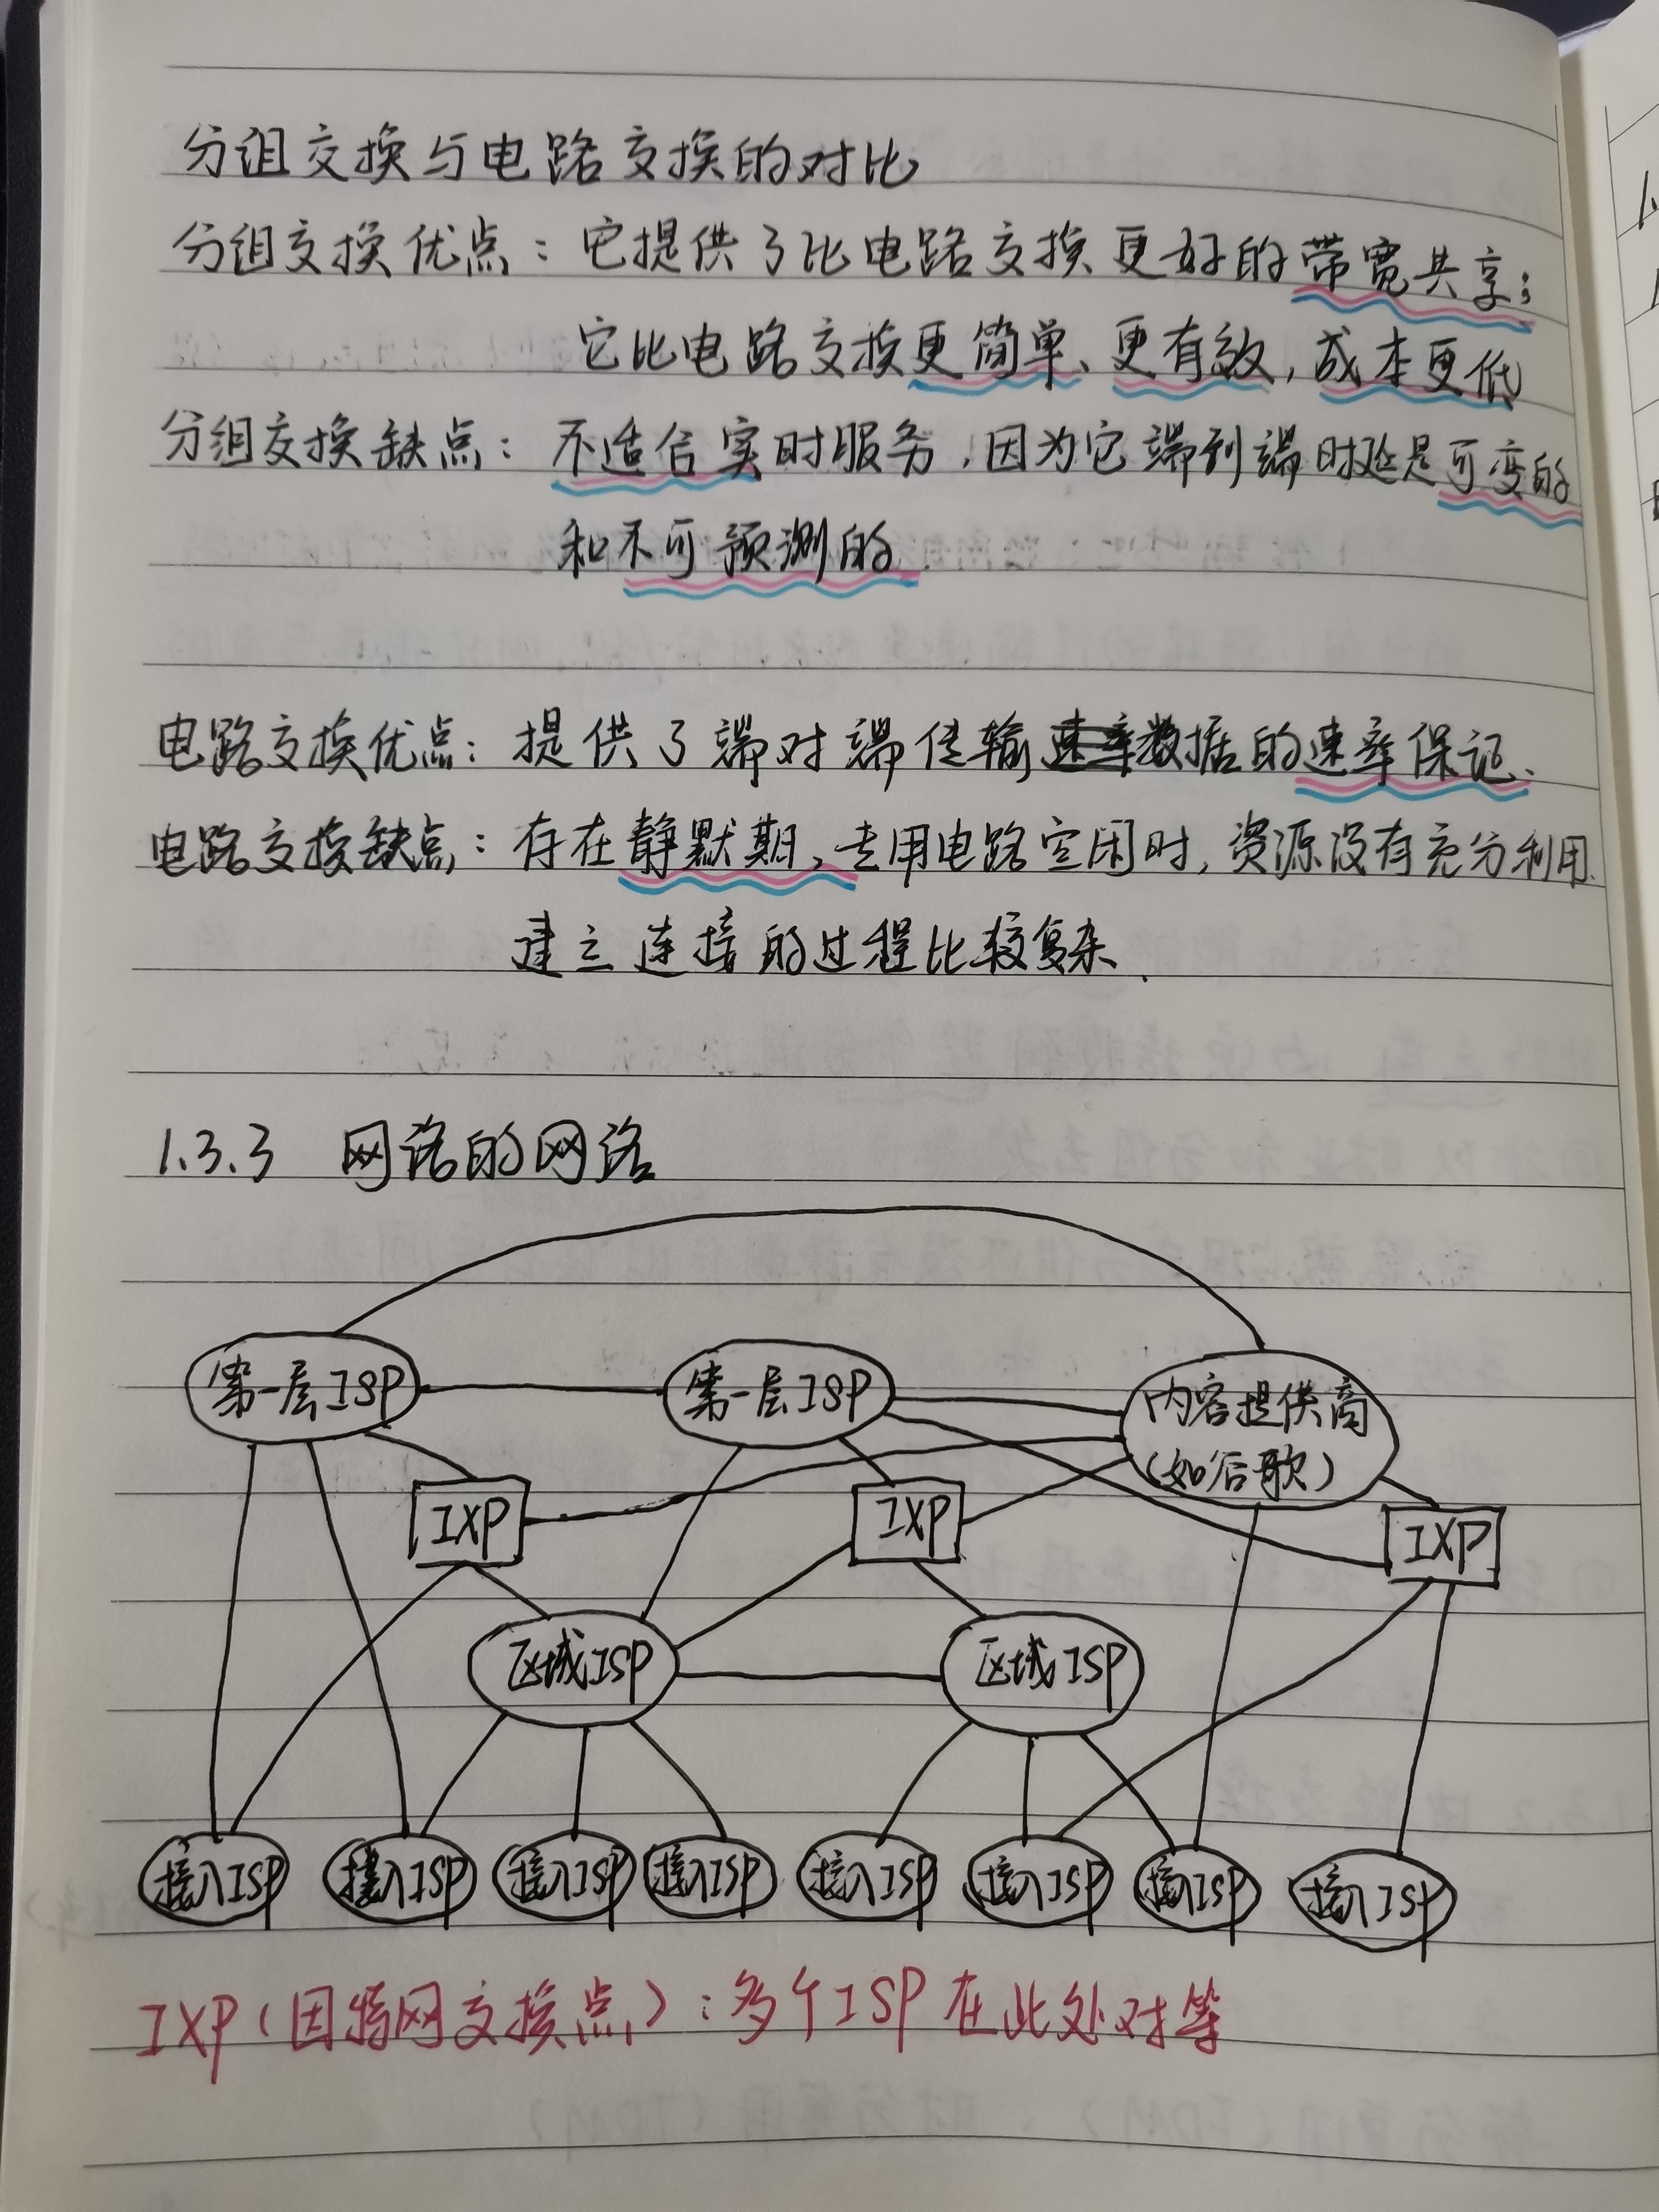 分组交换与电路交换的对比
分组交换优点：它提供了比电路交换更好的带宽共享；
它比电路交换更简单、更有效，成本更低
分组交换缺点：不适合实时服务，因为它端到端时延是可变的
和不可预测的.
电路交换优点：提供了端对端传输数据的速率保证.
电路交换缺点：存在静默期，专用电路空闲时，资源没有充分利用.
建立连接的过程比较复杂.
1.3.3 网络的网络
第一层ISP 第一层ISP 内容提供商
(如谷歌)
IXP IXP IXP
区域ISP 区域ISP
接入ISP 接入ISP 接入ISP 接入ISP 接入ISP 接入ISP 接入ISP 接入ISP
IXP（因特网交换点）：多个ISP在此处对等